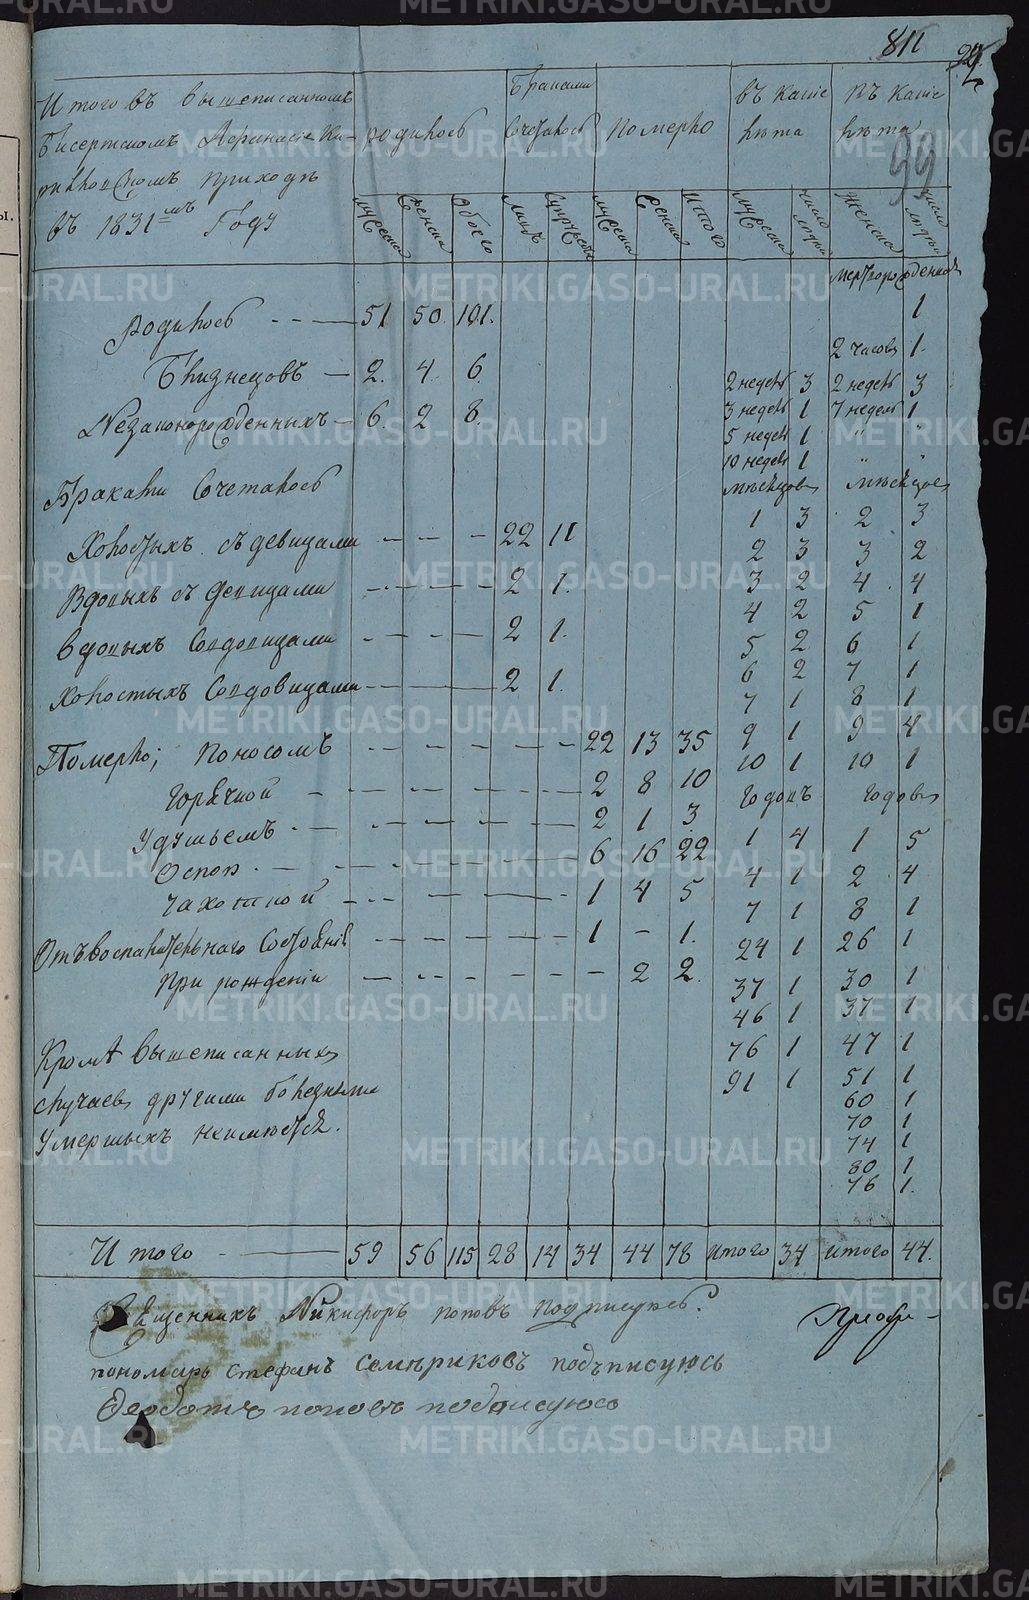 811
99
Итого въ вышеписанномъ
Бисертскомъ Афанасіе Ки-
рилловскомъ приходѣ
въ 1831мъ Году
родилось
Браками
Сочеталось
Померло
въ какіе
лѣта
въ какіе
лѣта
мужеска
женска
обоего
лицъ
супружествъ
мужеска
женска
итого
мужеска
число
людей
женска
число
людей
мертворожденной
1
Родилось - - — 51 50 101.
2 часовъ 1.
Близнецовъ — 2. 4. 6.
2 недель 3 2 недель 3
Незаконорожденныхъ - 6. 2 8.
3 недель 1 7 недель 1
5 недель 1 " "
10 недель 1 " "
Браками Сочеталось
мѣсяцовъ мѣсяцовъ
1 3 2 3
Холостыхъ съ девицами - — - 22 11
2 3 3 2
Вдовыхъ съ девицами - — — - 2 1.
3 2 4 4
4 2 5 1
вдовыхъ со вдовицами - — - — 2 1.
5 2 6 1
6 2 7 1
Холостыхъ со вдовицами - — — 2 1.
7 1 8 1
Померло; Поносомъ - - — - - — 22 13 35
9 1 9 4
10 1 10 1
Горячкой - — - — - — 2 8 10
Годовъ годовъ
Удушьемъ - — - — - — 2 1 3.
1 4 1 5
Оспой - — - — - — 6 16 22
4 1 2 4
Чахоткой - - — - — - 1 4 5
7 1 8 1
Отъ воспалительнаго Состоянія - — - — 1 - 1.
24 1 26 1
При рожденіи — - — - — - 2 2.
37 1 30 1
46 1 37 1
Кромѣ вышеписанныхъ
76 1 47 1
случаевъ другими болезньми
91 1 51 1
60 1
умершихъ неимется.
70 1
74 1
80 1
76 1.
Итого - — 59 56 115 28 14 34 44 78 итого 34 итого 44.
Священникъ Никифоръ Поповъ подписуюсь.
пономарь Стефанъ Семѣриковъ подъписуюсь
Федотъ поповъ подписуюсь
METRIKI.GASO-URAL.RU